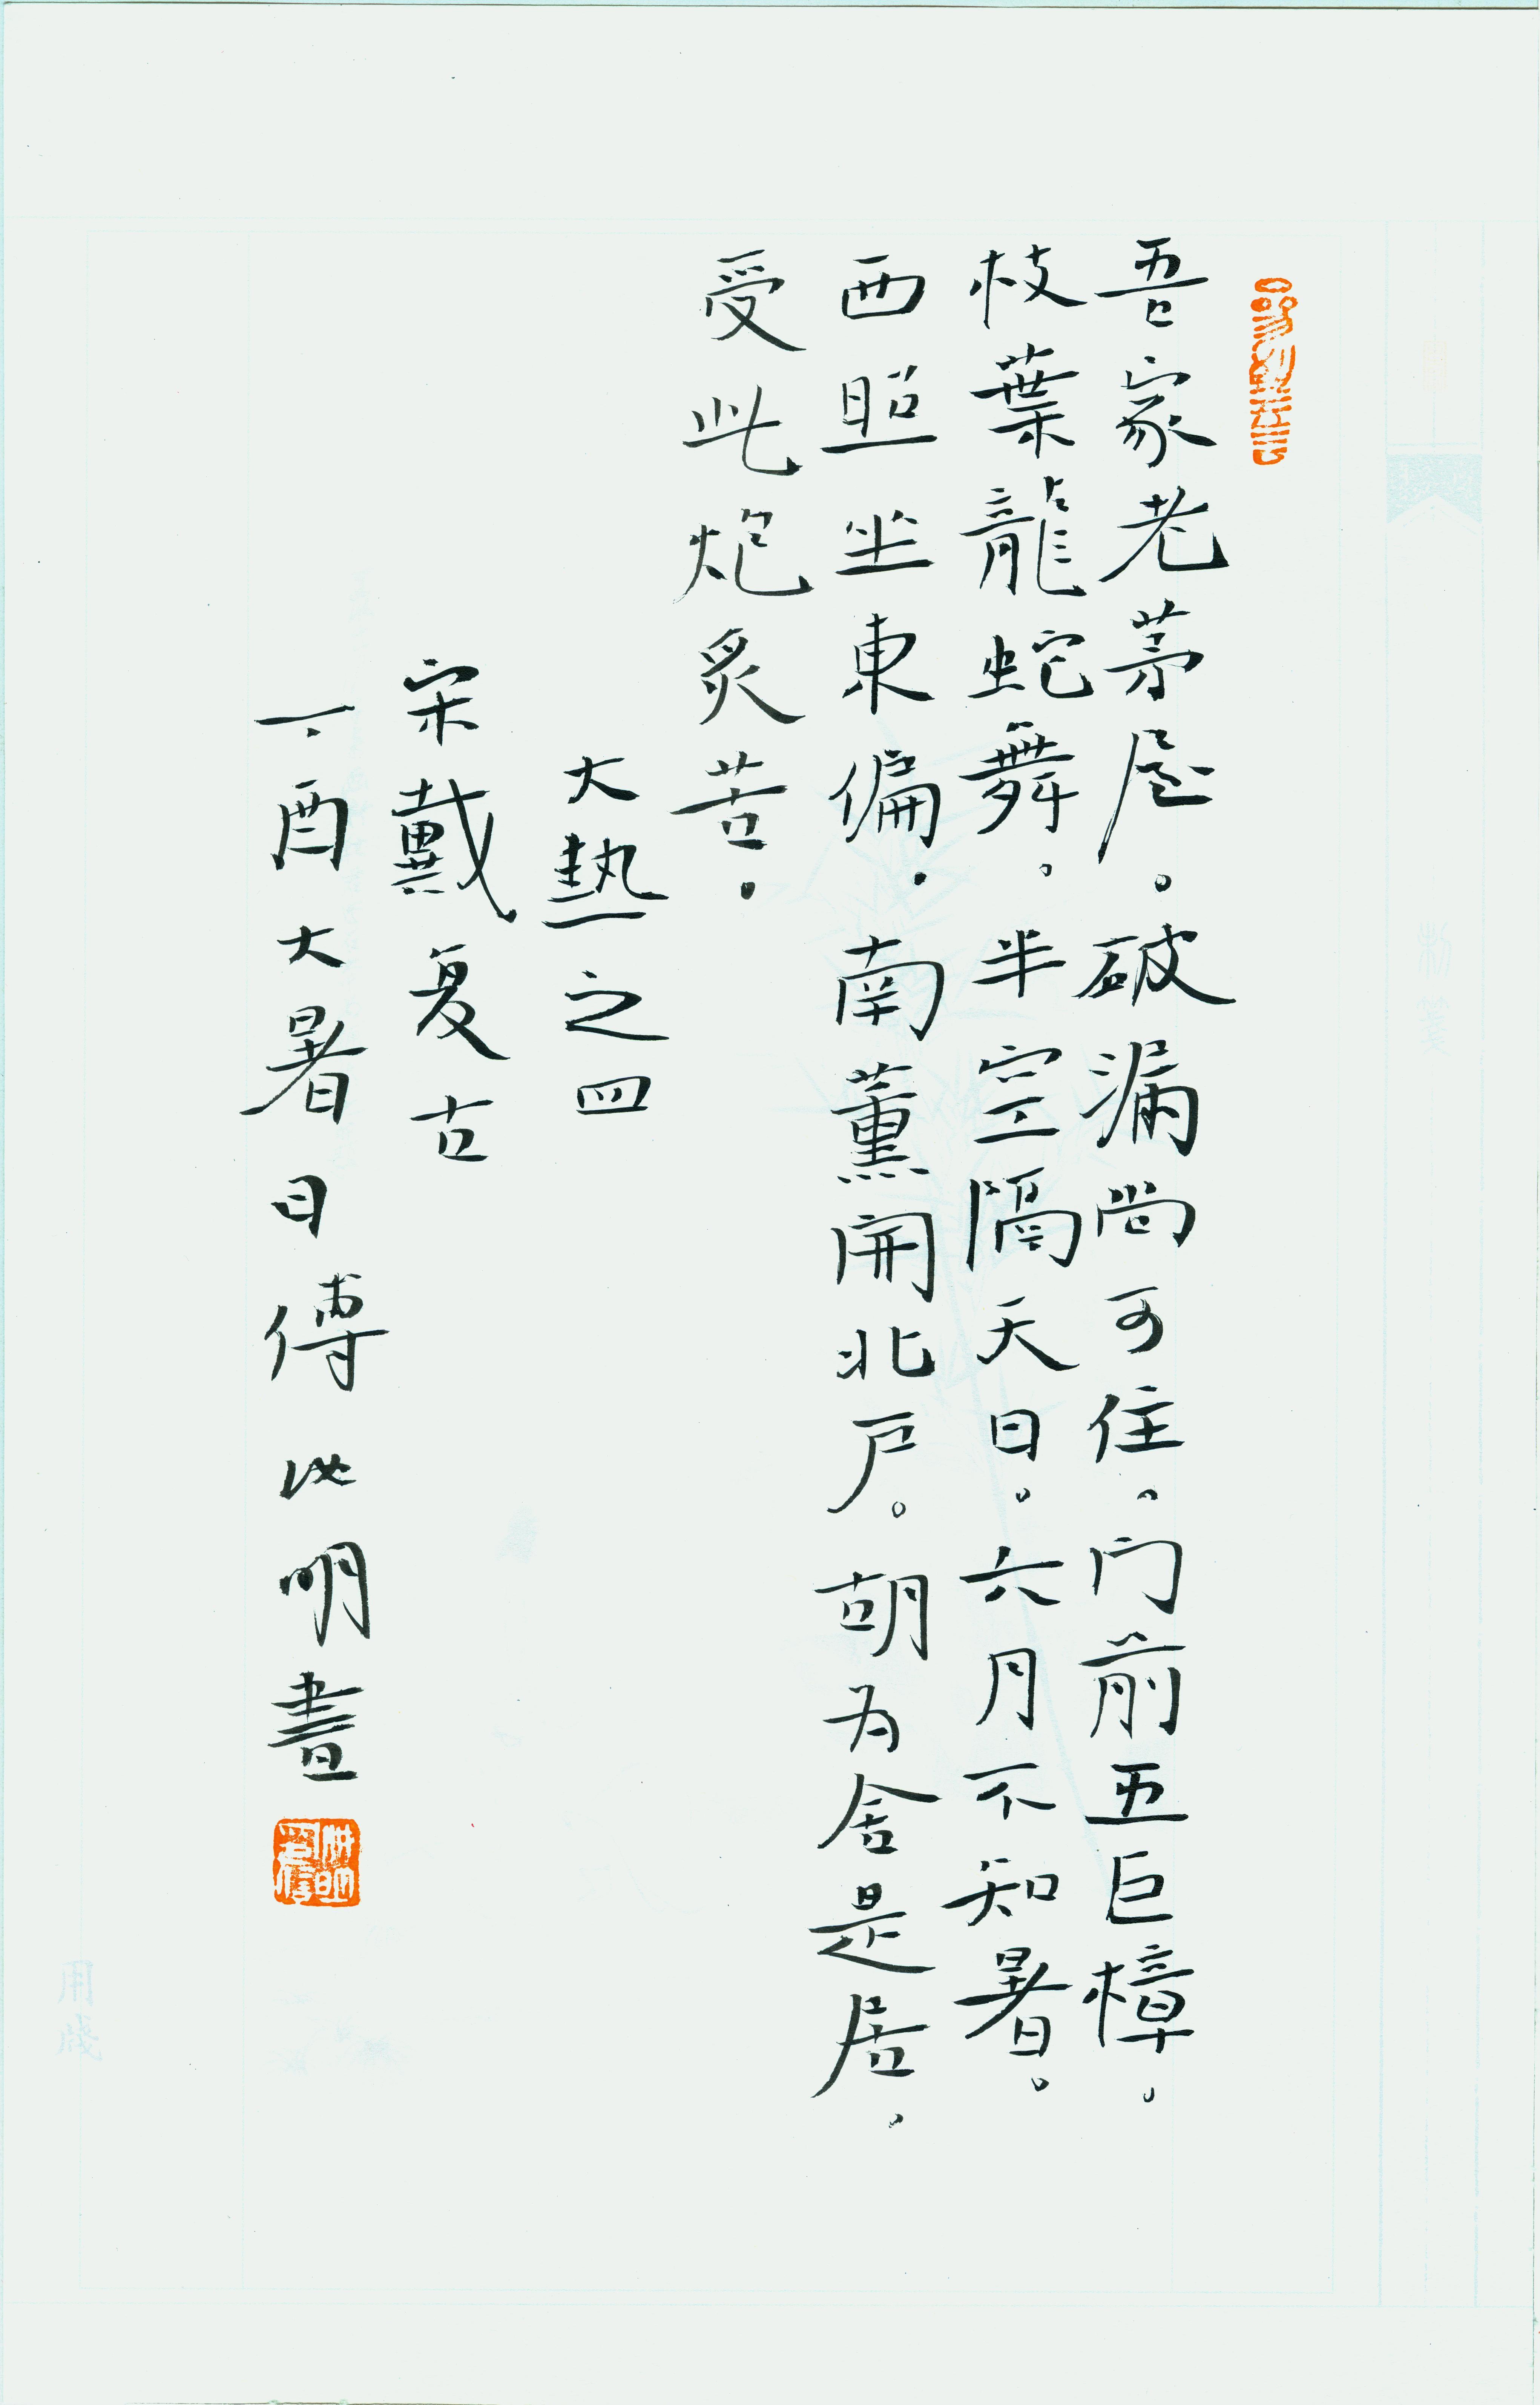 吾家老茅屋。破漏尚可住。门前五巨樟。
枝葉龍蛇舞。半空隔天日。六月不知暑。
西照坐東偏。南薰開北户。胡为舍是居。
受此炮炙苦。
大熱之四
宋戴复古
丁酉大暑日傅明書
用牋